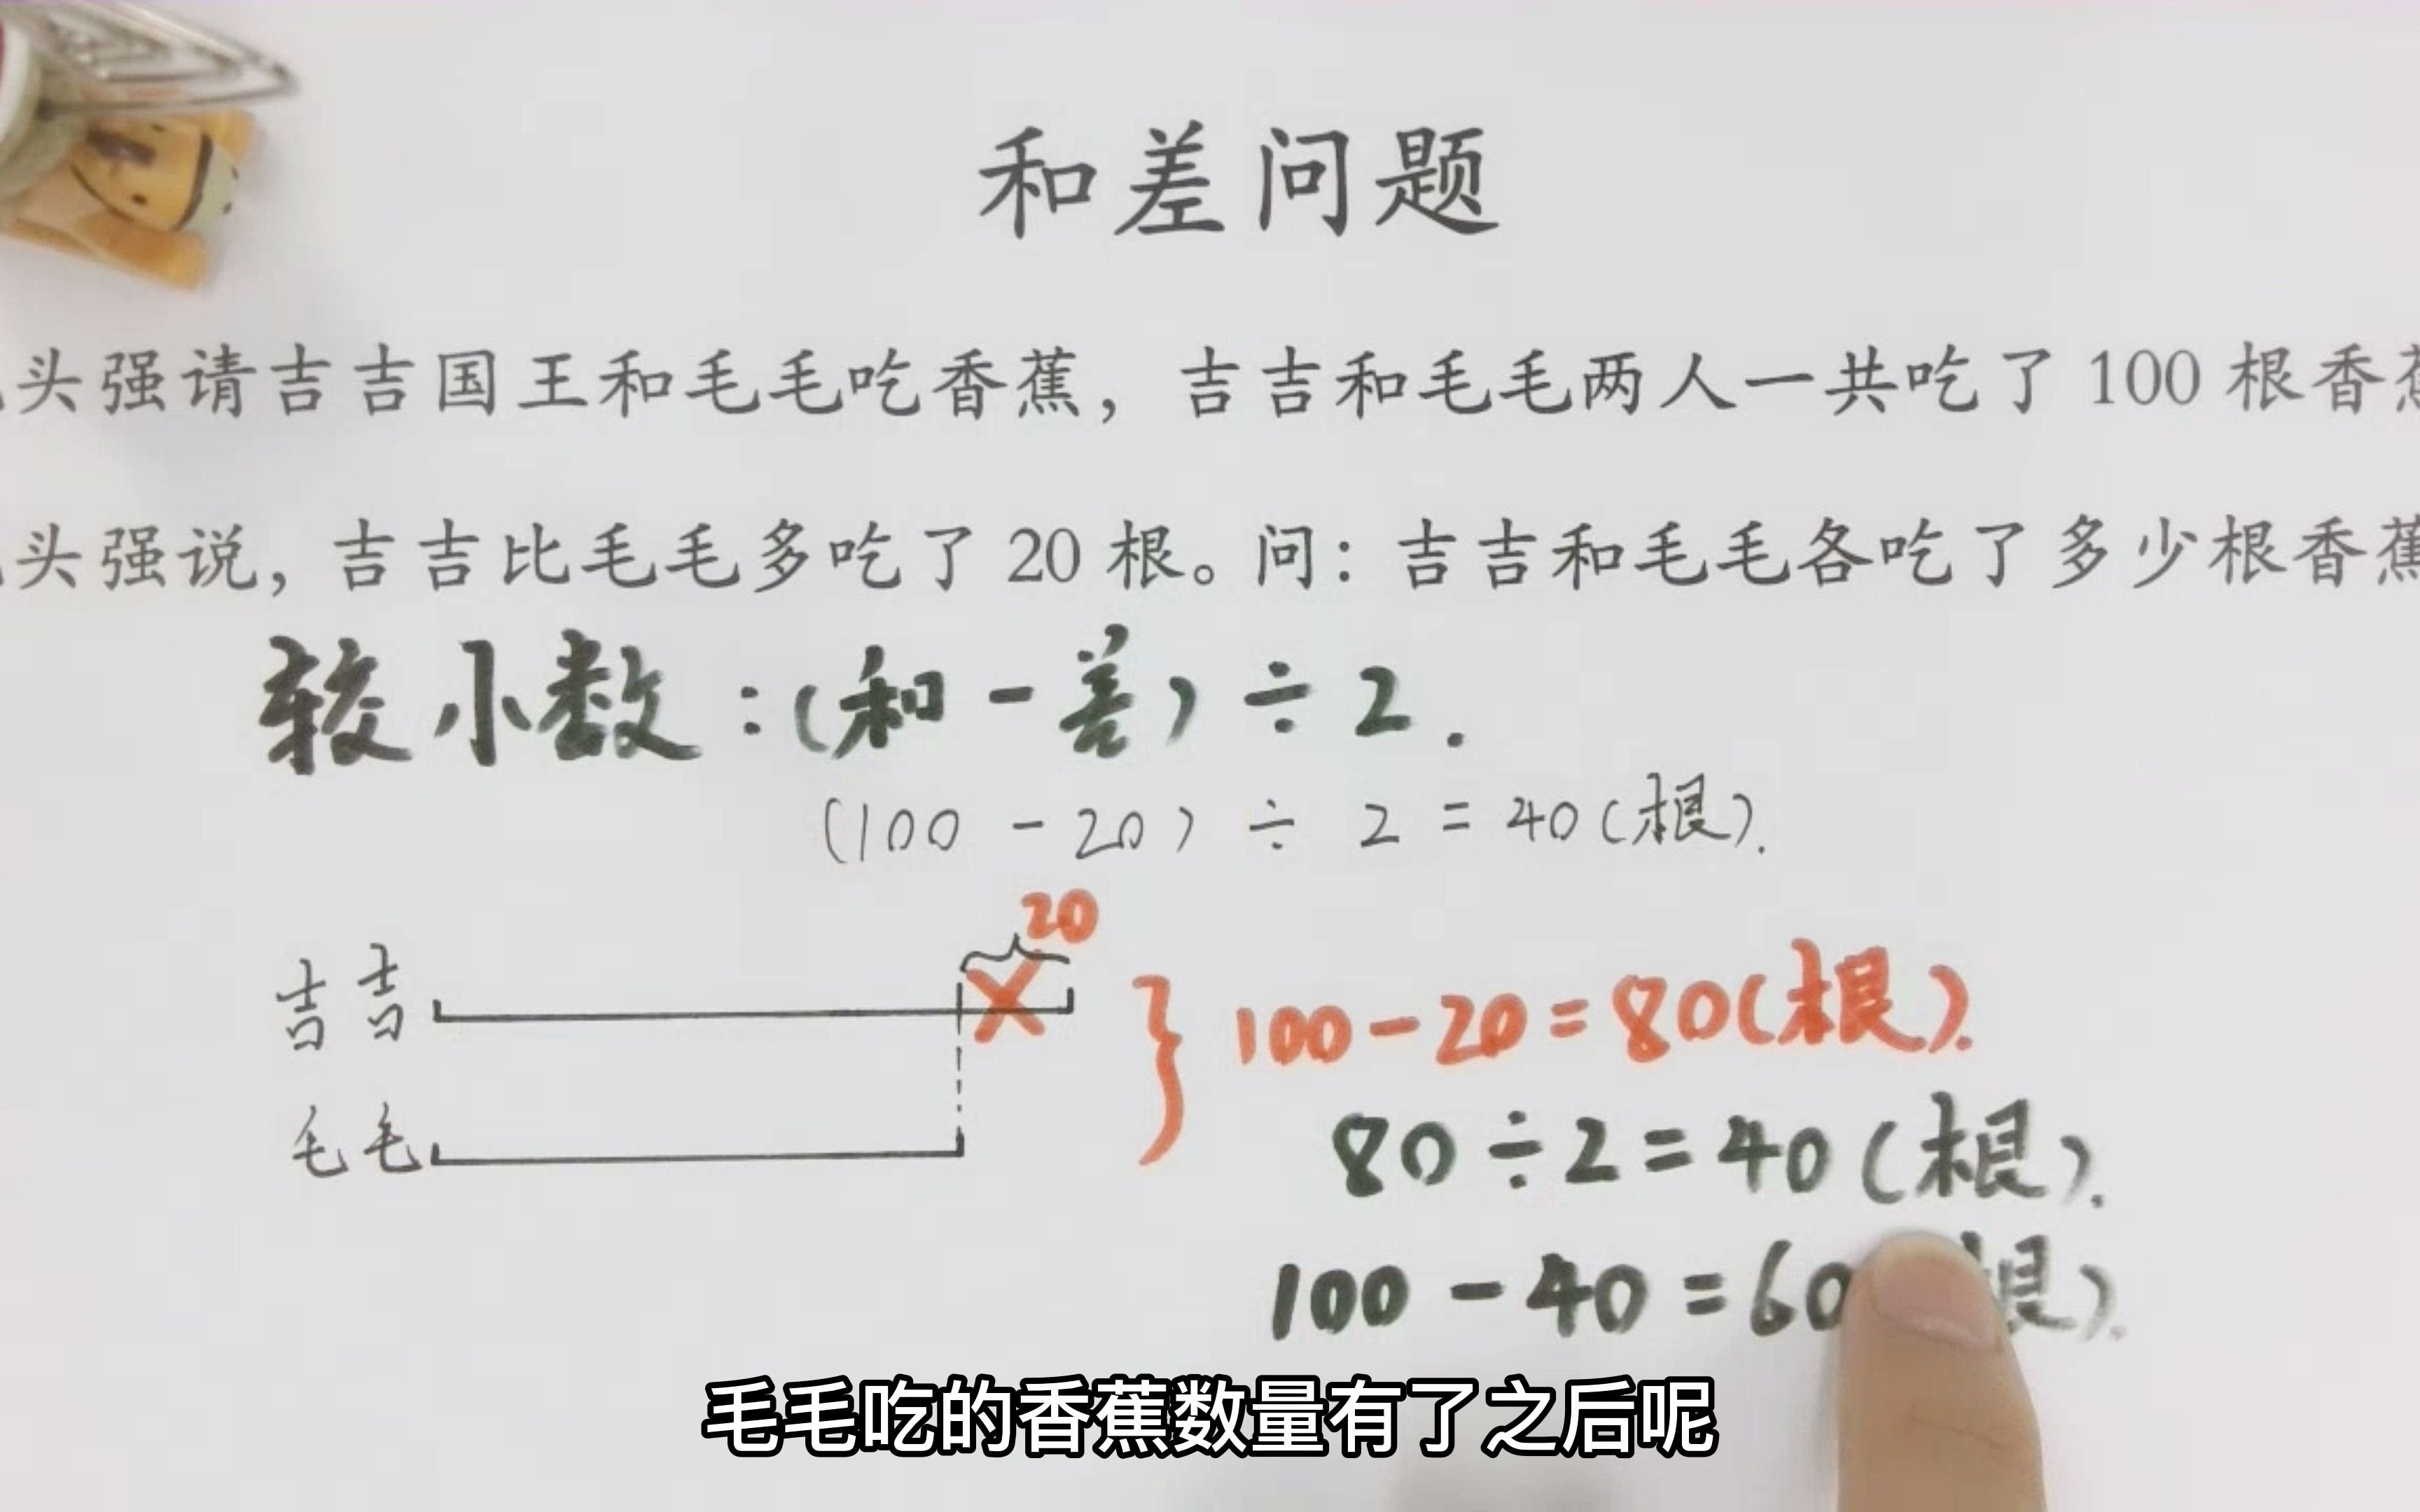 和差问题
头强请吉吉国王和毛毛吃香蕉，吉吉和毛毛两人一共吃了 100 根香蕉
头强说，吉吉比毛毛多吃了 20 根。问：吉吉和毛毛各吃了多少根香蕉
较小数：(和 - 差) ÷ 2.
(100 - 20) ÷ 2 = 40(根).
20
吉吉
100-20=80(根).
毛毛
80÷2=40(根).
100-40=60根).
毛毛吃的香蕉数量有了之后呢